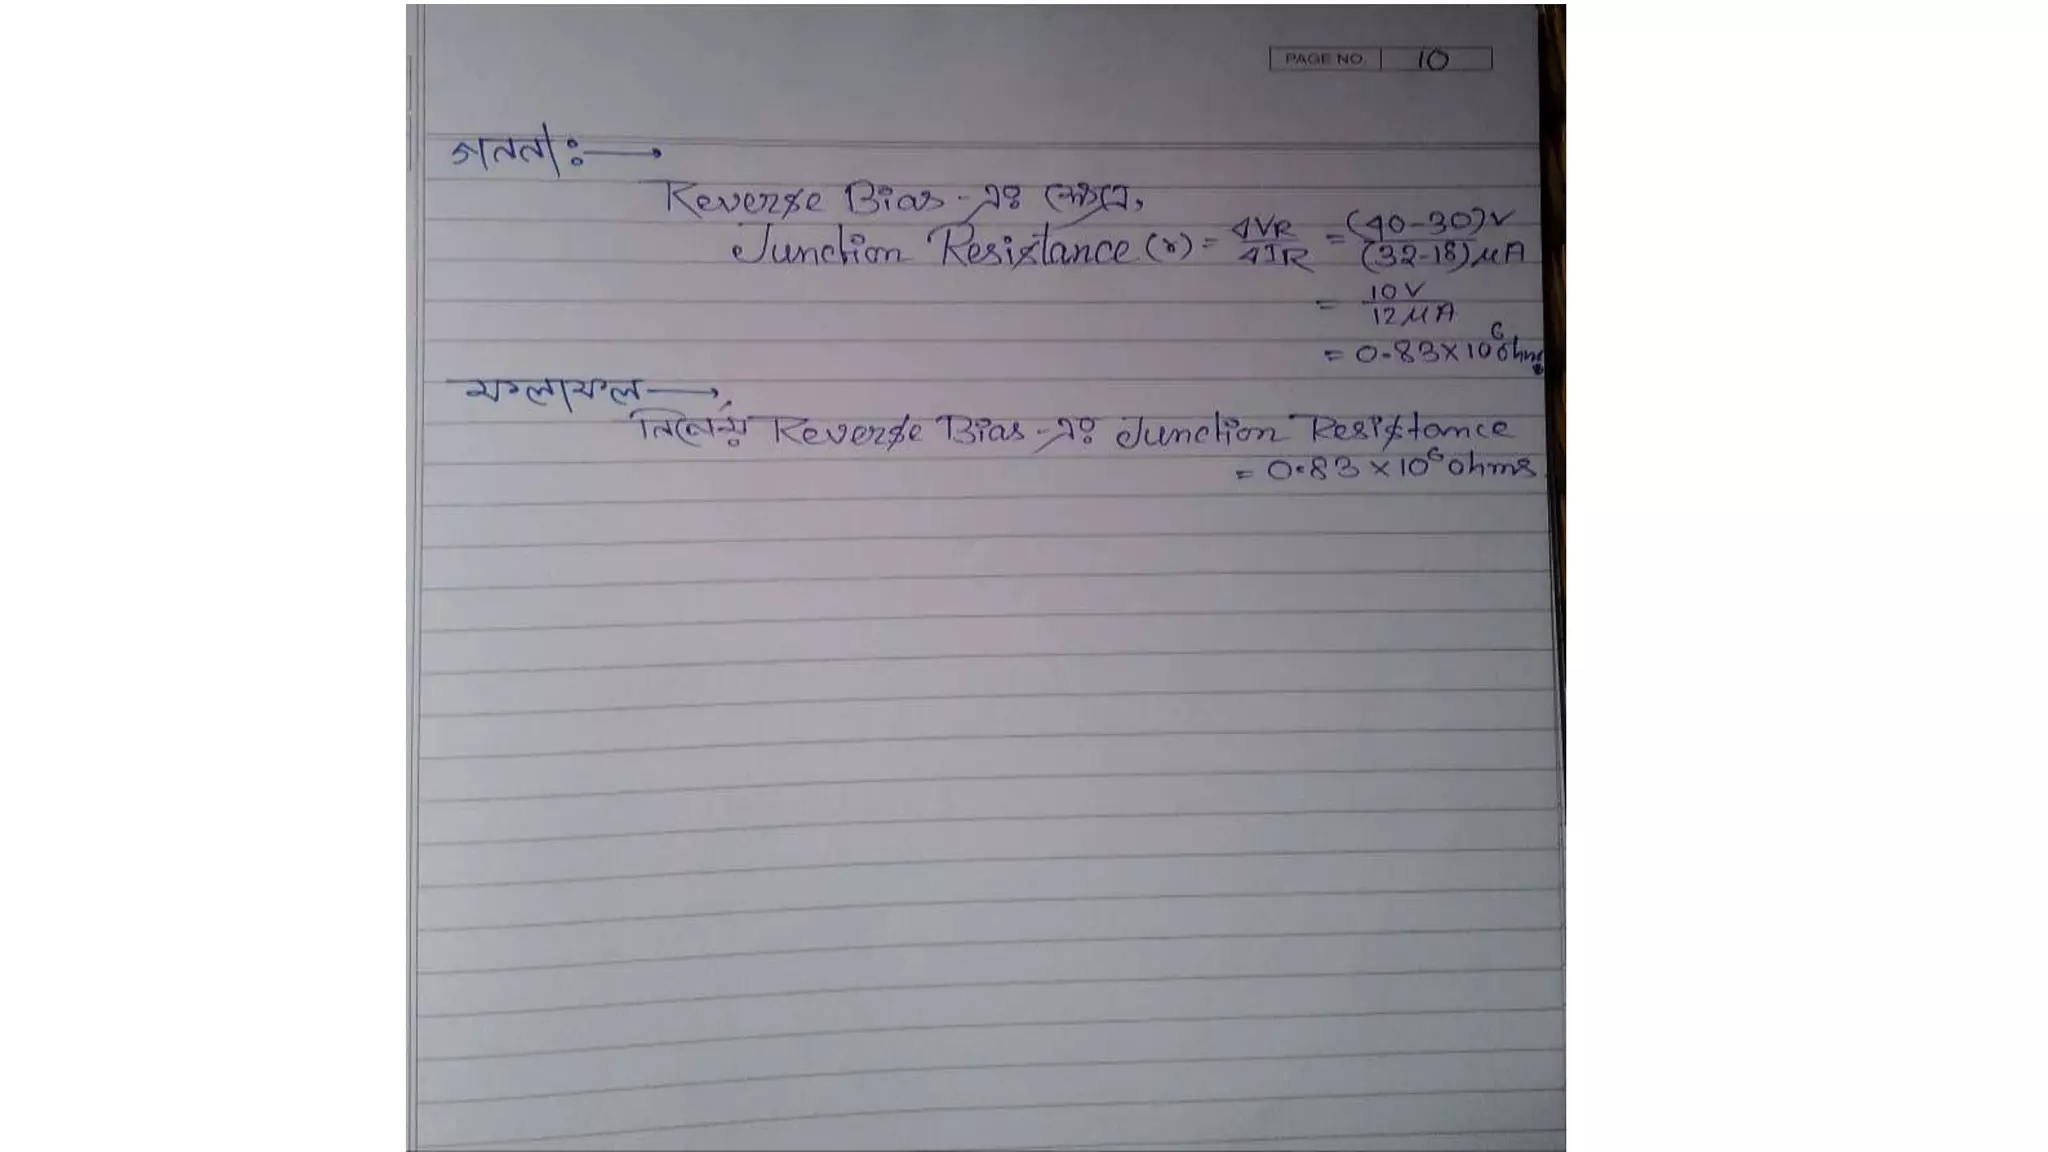 PAGE NO. 10
গননা ঃ⟶
Reverse Bias-এর ক্ষেত্রে,
Junction Resistance (r) = ΔVR/ΔIR = (40-30)V/(32-18)μA
= 10V/12μA
= 0.83×10⁶ ohms
ফলাফল ⟶
নির্নেয় Reverse Bias-এর Junction Resistance
= 0.83 × 10⁶ ohms